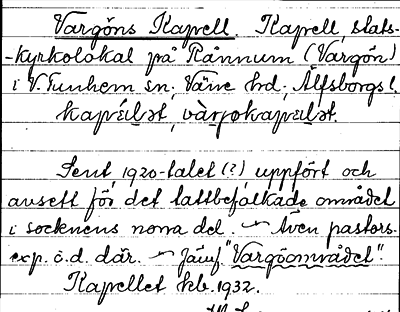 Vargöns Kapell. Kapell, stats-
-kyrkolokal på Rånnum (Vargön)
i V. Tunhem sn, Väne hd, Älfsborgs l.
Sent 1920-talet (?) uppfört och
avsett för det tättbefolkade området
i socknens norra del. – Även pastors-
exp. o.d. där. – Jämf. "Vargöområdet".
Kapellet kb. 1932.